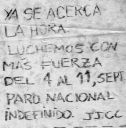 YA SE ACERCA
LA HORA.
LUCHEMOS CON
MAS FUERZA
DEL 4 AL 11, SEPT.
PARO NACIONAL
INDEFINIDO. JJCC